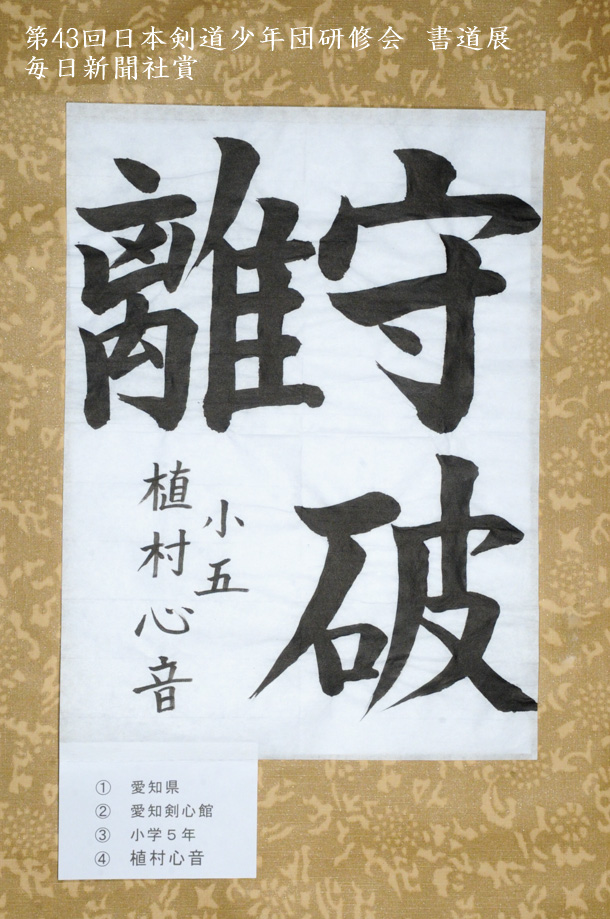 第43回日本剣道少年団研修会 書道展
毎日新聞社賞
守破
離
小五
植村心音
① 愛知県
② 愛知剣心館
③ 小学５年
④ 植村心音